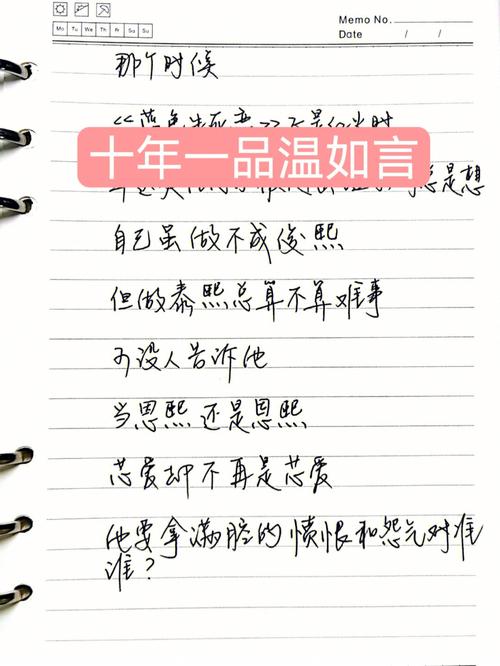 Memo No.
Mo Tu We Th Fr Sa Su
Date / /
那个时候
十年一品温如言
总是想
自己虽做不成俊熙
但做泰熙总算不算难事
可没人告诉他
当恩熙还是恩熙
芯爱却不再是芯爱
他要拿满腔的愤恨和怨气对准
谁？